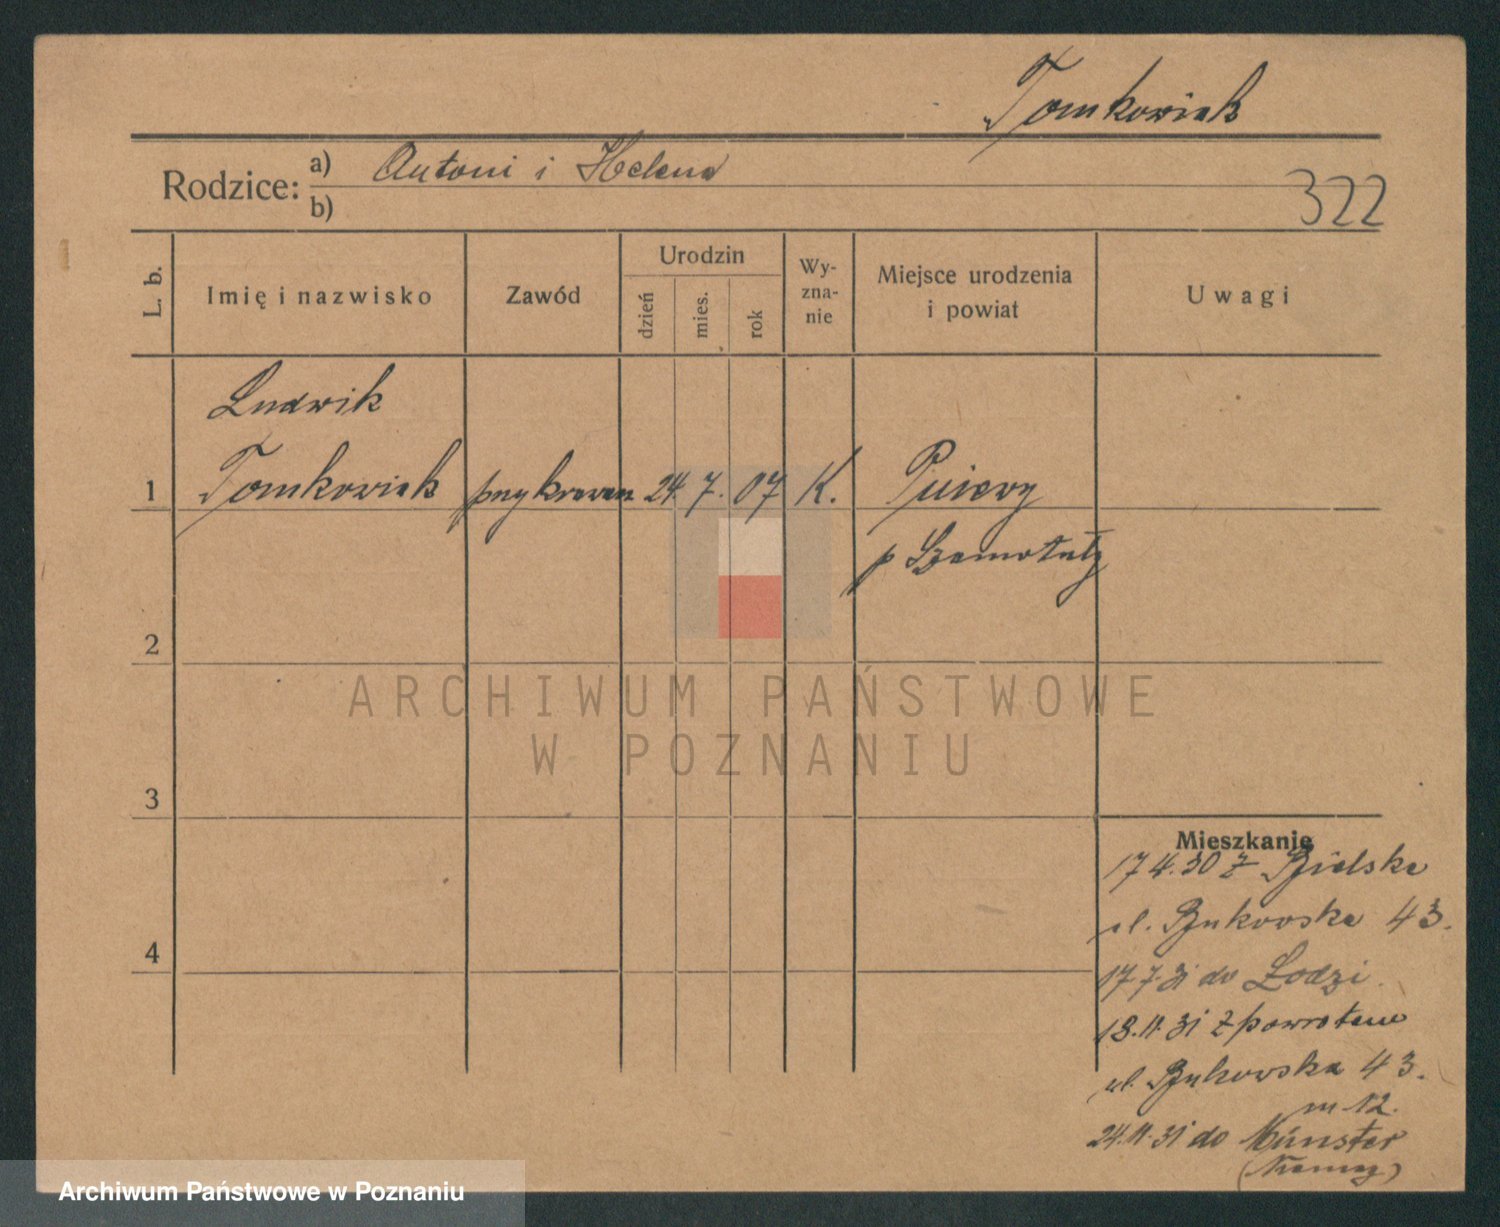 Tomkowiak
Rodzice: a) Antoni i Helena
b)
322
L. b.
Imię i nazwisko
Zawód
Urodzin
dzień
mies.
rok
Wy-
zna-
nie
Miejsce urodzenia
i powiat
Uwagi
Ludwik
1 Tomkowiak 24. 7. 07 K. Pniewy
p Szamotuły
2
3
4
Mieszkanie
17 4.30 z Bielska
ul. Bukowska 43.
17.7.31 do Łodzi.
18.11.31 z powrotem
ul. Bukowska 43.
m 12.
24.11.31 do Münster
(Niemcy)
ARCHIWUM PAŃSTWOWE
W POZNANIU
Archiwum Państwowe w Poznaniu